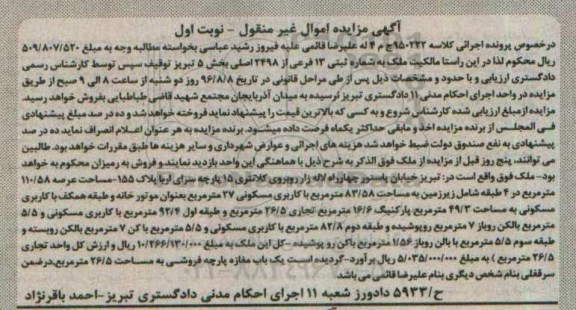 آگهی مزایده اموال غیر منقول - نوبت اول
درخصوص پرونده اجرائی کلاسه ۹۵۰۲۲۲ج م ۴ له علیرضا قائمی علیه فیروز رشید عباسی بخواسته مطالبه وجه به مبلغ ۵۰۹/۸۰۷/۵۲۰
ریال محکوم لذا در این راستا مالکیت ملک به شماره ثبتی ۱۳ فرعی از ۲۴۹۸ اصلی بخش ۵ تبریز توقیف سپس توسط کارشناس رسمی
دادگستری ارزیابی و با حدود و مشخصات ذیل پس از طی مراحل قانونی در تاریخ ۹۶/۸/۸ روز دو شنبه از ساعت ۸ الی ۹ صبح از طریق
مزایده در واحد اجرای احکام مدنی ۱۱ دادگستری تبریز نرسیده به میدان آذربایجان مجتمع شهید قاضی طباطبایی بفروش خواهد رسید.
مزایده ازمبلغ ارزیابی شده کارشناس شروع و به کسی که بالاترین قیمت را پیشنهاد نماید فروخته خواهد شد و ده در صد مبلغ پیشنهادی
فی المجلس از برنده مزایده اخذ و مابقی حداکثر یکماه فرصت داده میشود. برنده مزایده به هر عنوان اعلام انصراف نماید ده در صد
پیشنهادی به نفع صندوق دولت ضبط خواهد شد هزینه های اجرائی و عوارض شهرداری و سایر هزینه ها طبق مقررات خواهد بود. طالبین
می توانند، پنج روز قبل از مزایده از ملک فوق الذکر به شرح ذیل با هماهنگی این واحد بازدید نمایند و فروش به رمیزان محکوم به خواهد
بود- ملک فوق واقع است در: تبریز خیابان پاستور چهارراه لاله زار روبروی کلانتری ۱۵ پارچه سرای آریا پلاک ۱۵۵-مساحت عرصه ۱۱۰/۵۸
مترمربع در ۴ طبقه شامل زیرزمین به مساحت ۸۳/۵۸ مترمربع با کاربری مسکونی ۲۷ مترمربع بعنوان موتور خانه و طبقه همکف با کاربری
مسکونی به مساحت ۴۹/۳ مترمربع پارکنیگ ۱۶/۶ مترمربع تجاری ۲۶/۵ مترمربع و طبقه اول ۹۲/۴ مترمربع با کاربری مسکونی و ۵/۵
مترمربع بالکن روباز ۷ مترمربع روپوشیده و طبقه دوم ۸۲/۸ مترمربع با کاربری مسکونی و ۵/۵ مترمربع با کن ۷ مترمربع بالکن روبسته و
طبقه سوم ۵/۵ مترمربع با بالن روباز ۱/۵۶ مترمربع باکن رو پوشیده - کل این ملک به مبلغ ۱۰/۲۶۶/۱۳۰/۰۰۰ ریال و ارزش کل واحد تجاری
(۲۶/۵ مترمربع ) به مبلغ ۵/۰۳۵/۰۰۰/۰۰۰ ریال برآورد-گردیده است یک باب مغازه پارچه فروشی به مساحت ۲۶/۵ مترمربع.درضمن
سرقفلی بنام شخص دیگری بنام علیرضا قائم می باشد
ح/۵۹۳۳ دادورز شعبه ۱۱ اجرای احکام مدنی دادگستری تبریز-احمد باقرنژاد